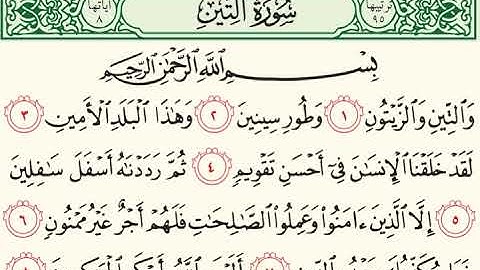 ترتيبها ٩٥ سُورَةُ التِّينِ آياتها ٨
بِسْمِ اللَّهِ الرَّحْمَٰنِ الرَّحِيمِ
وَالتِّينِ وَالزَّيْتُونِ ١ وَطُورِ سِينِينَ ٢ وَهَٰذَا الْبَلَدِ الْأَمِينِ ٣
لَقَدْ خَلَقْنَا الْإِنسَانَ فِىٓ أَحْسَنِ تَقْوِيمٍ ٤ ثُمَّ رَدَدْنَاهُ أَسْفَلَ سَافِلِينَ
٥ إِلَّا الَّذِينَ ءَامَنُوا وَعَمِلُوا الصَّالِحَاتِ فَلَهُمْ أَجْرٌ غَيْرُ مَمْنُونٍ ٦